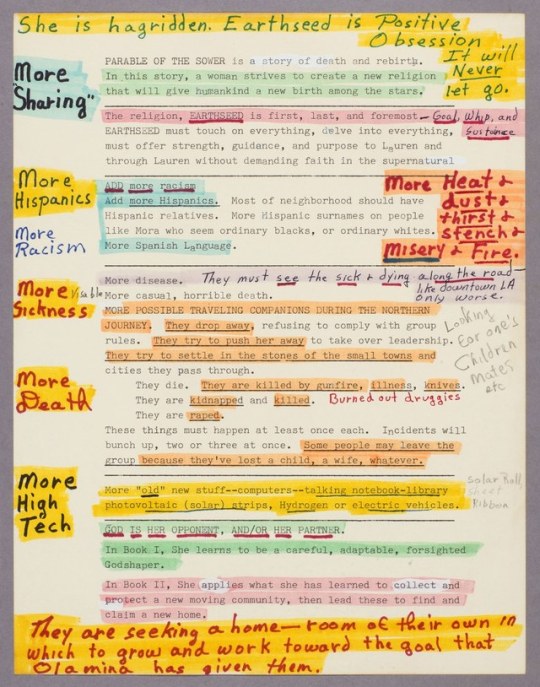 She is hagridden. Earthseed is Positive
Obsession
It will
Never
let go.
PARABLE OF THE SOWER is a story of death and rebirth.
In this story, a woman strives to create a new religion
that will give humankind a new birth among the stars.
More
"Sharing"
The religion, EARTHSEED is first, last, and foremost— Goal, Whip, and
Sustenance
EARTHSEED must touch on everything, delve into everything,
must offer strength, guidance, and purpose to Lauren and
through Lauren without demanding faith in the supernatural
More
Hispanics
More
Racism
ADD more racism
Add more Hispanics. Most of neighborhood should have
Hispanic relatives. More Hispanic surnames on people
like Mora who seem ordinary blacks, or ordinary whites.
More Spanish Language.
More Heat &
dust &
thirst &
stench &
Misery & Fire.
More
Sickness
More disease. They must see the sick & dying along the road—
like downtown LA
only worse.
Visable
More casual, horrible death.
MORE POSSIBLE TRAVELING COMPANIONS DURING THE NORTHERN
JOURNEY. They drop away, refusing to comply with group
rules. They try to push her away to take over leadership.
They try to settle in the stones of the small towns and
cities they pass through.
Looking
For one's
Children
Mates
etc
More
Death
They die. They are killed by gunfire, illness, knives.
They are kidnapped and killed. Burned out druggies
They are raped.
These things must happen at least once each. Incidents will
bunch up, two or three at once. Some people may leave the
group because they've lost a child, a wife, whatever.
More
High
Tech
More "old" new stuff--computers--talking notebook-library
photovoltaic (solar) strips, Hydrogen or electric vehicles.
Solar Roll
Sheet
Ribbon
GOD IS HER OPPONENT, AND/OR HER PARTNER.
In Book I, She learns to be a careful, adaptable, forsighted
Godshaper.
In Book II, She applies what she has learned to collect and
protect a new moving community, then lead these to find and
claim a new home.
They are seeking a home— room of their own in
which to grow and work toward the goal that
Olamina has given them.